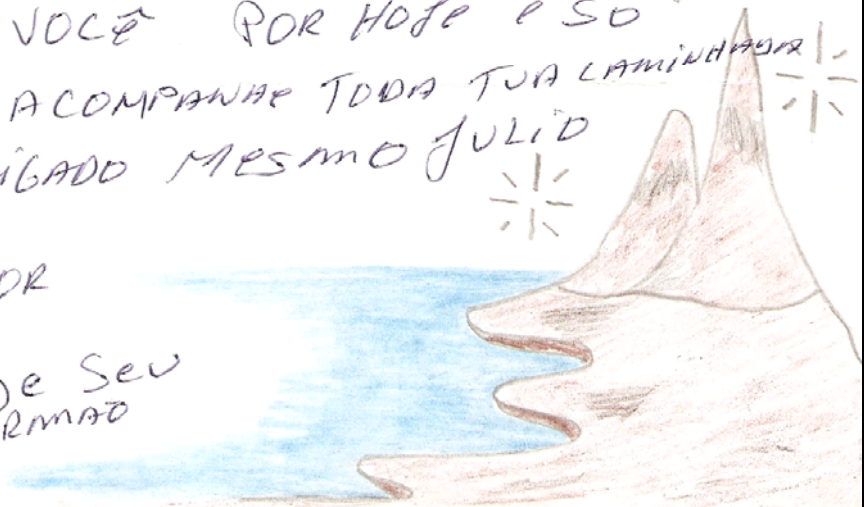 VOCÊ POR HOJE e SO
ACOMPANHE TODA TUA CAMINHADA
iGADO MeSmO JULiO
OR
De SeU
RMAO